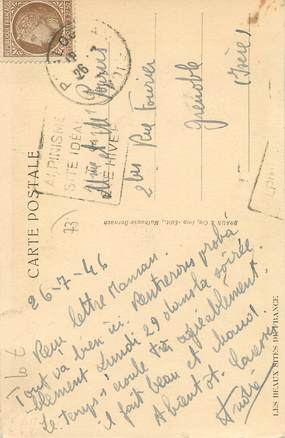 CARTE POSTALE
ALPINISME
SITE IDÉAL
D'HIVER
Mme et M. Poirers
2 bis Rue Fourier
Grenoble
(Isère)
BRAUN & Cie, Imp.-Édit., Mulhouse-Dornach
LES BEAUX SITES DE FRANCE
26-7-46
Reçu lettre Maman.
Tout va bien ici. Rentrerons proba
blement Lundi 29 dans la soirée
Le temps s'écoule très agréablement.
Il fait beau et chaud
A bientôt.
André